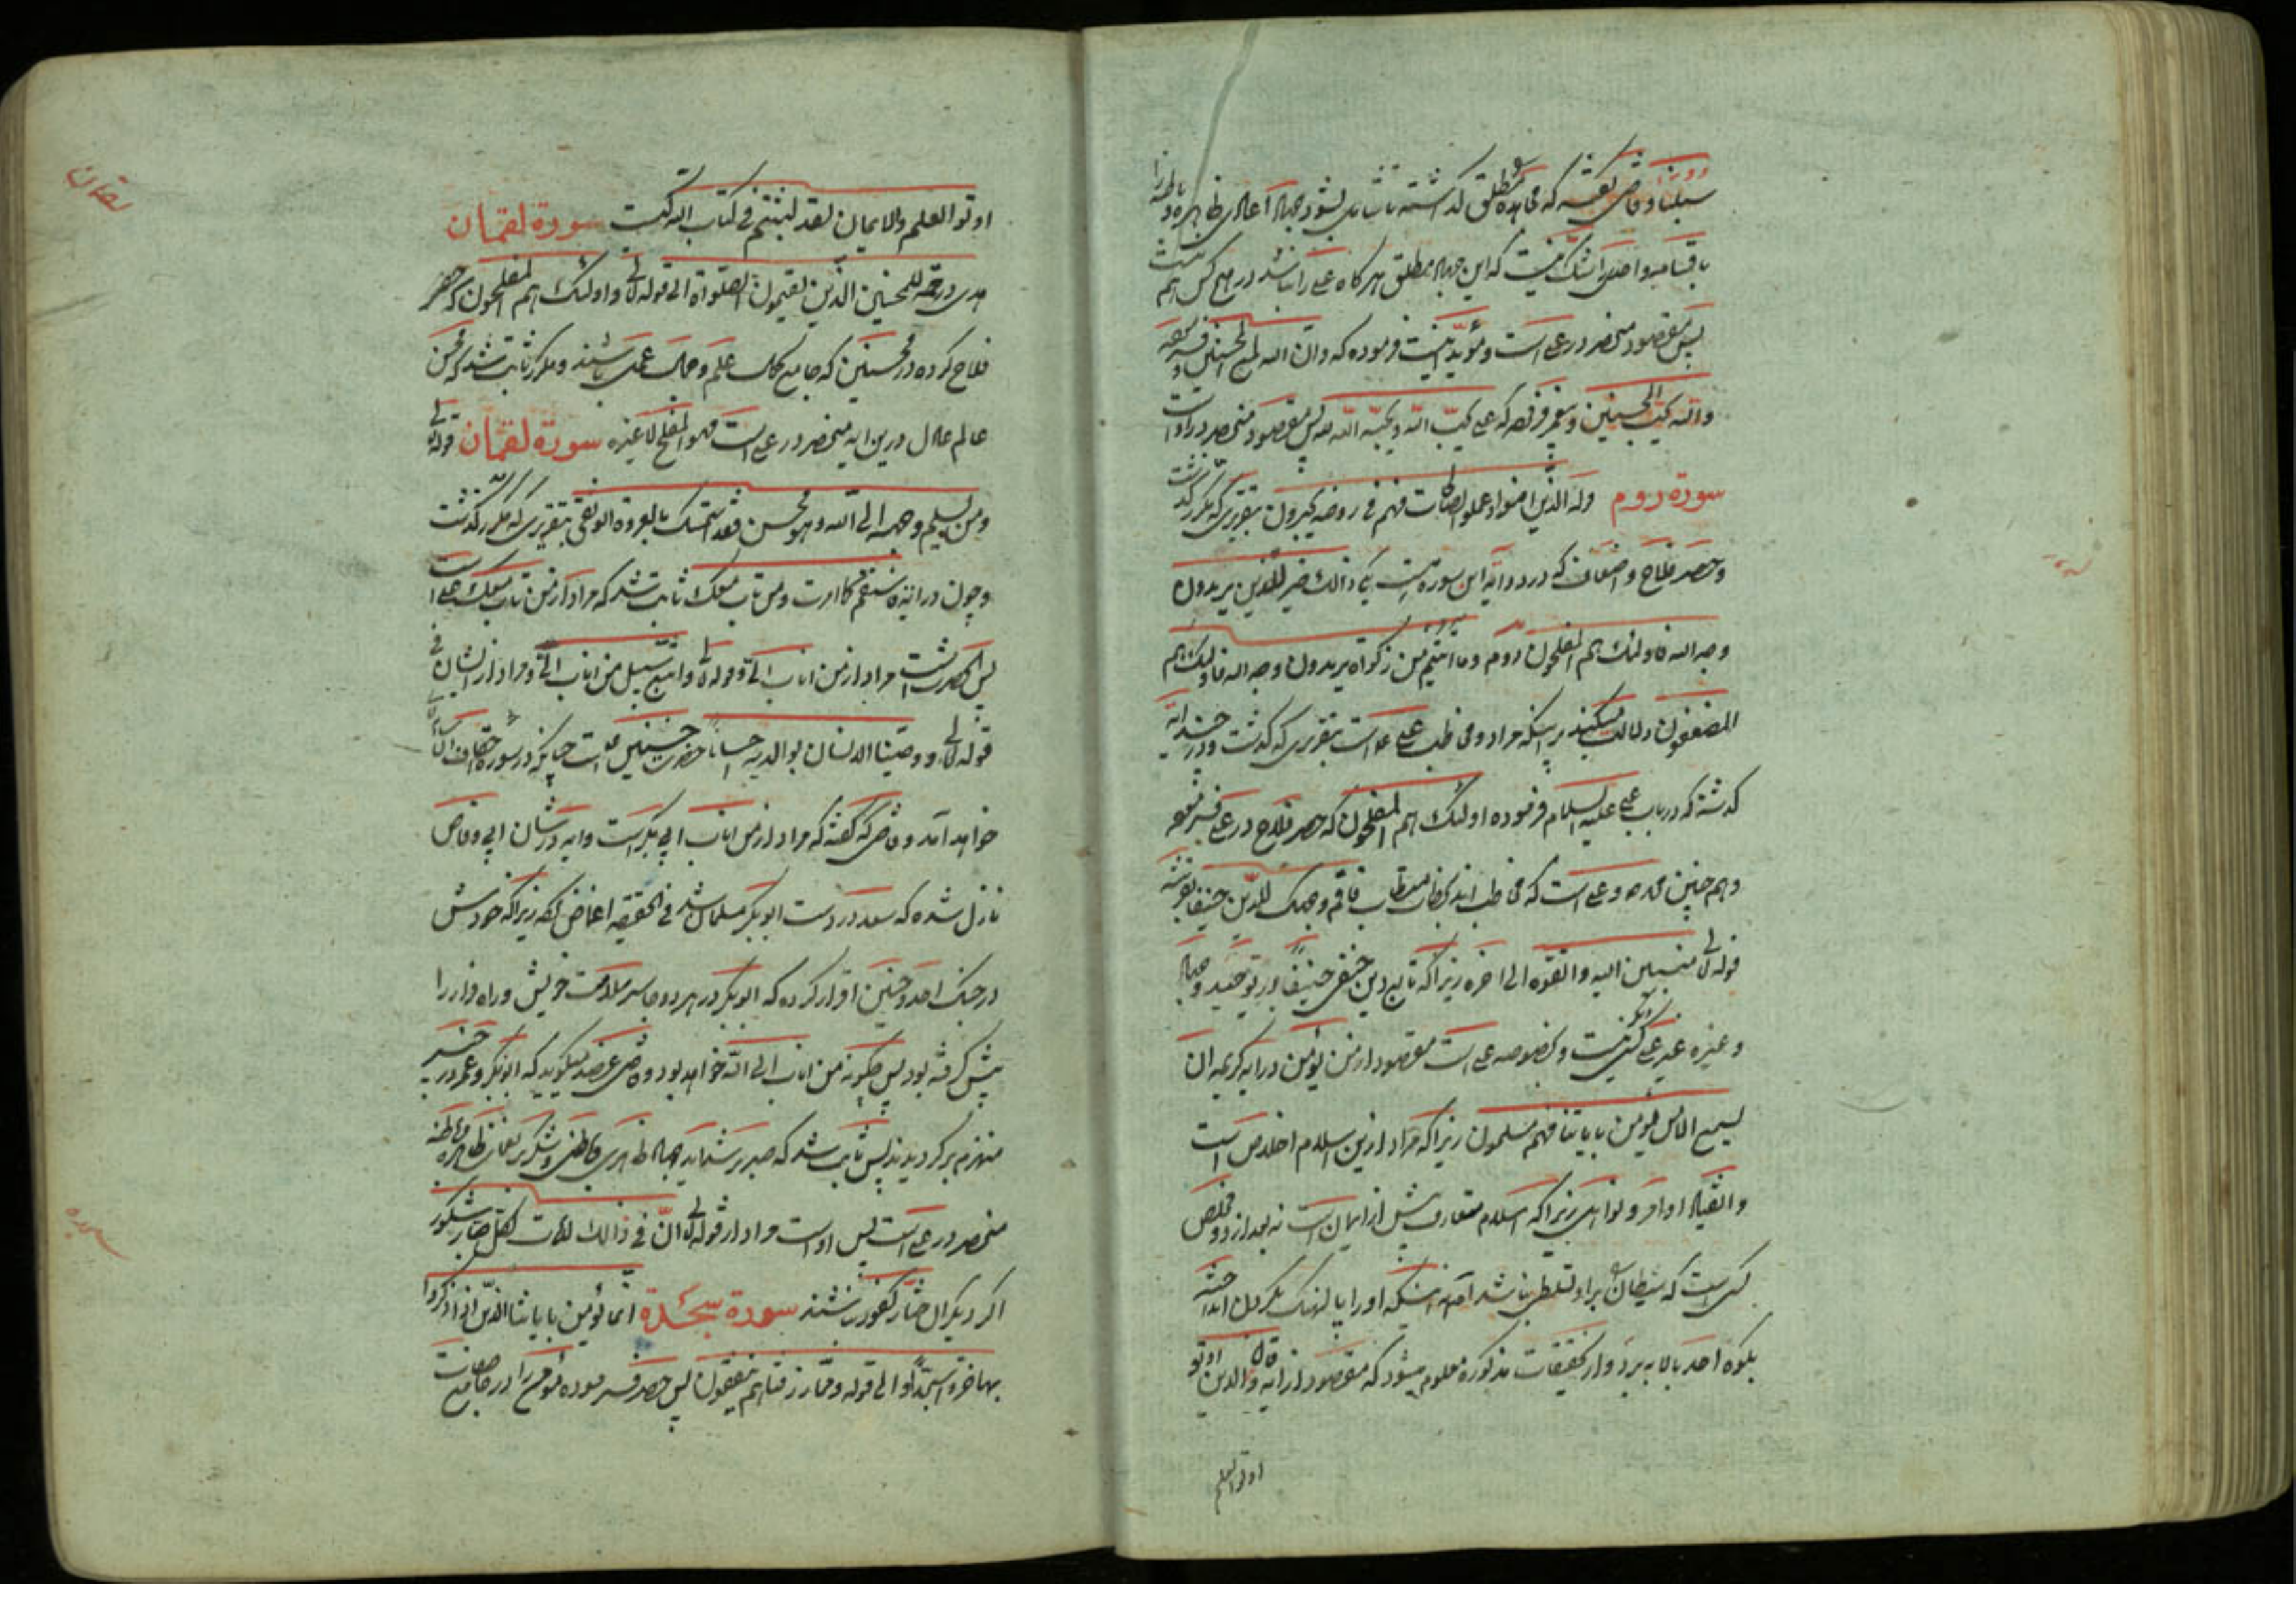 سبلنا و قاضی گفته که مجاهده مطلق گذاشته تا شامل بشود جهاد اعادی ظاهره و باطنه را
باقسامها و احدیرا شک نیست که این جهاد مطلق هرگاه علی را نباشد در هیچ کس هم نیست
پس مقصود منحصر در علی است و مؤید اینست فرموده که وان الله لمع المحسنین
والله یحب المحسنین و پیغمبر فرموده که علی یحب الله و یحبه الله پس مقصود منحصر در او است
سورة روم وله الذین امنوا و عملوا الصالحات فهم فی روضة یحبرون بتقریری که مکرر گذشت
و حصر فلاح و اضعاف که در دو آیه این سوره است یکی ذالک خیر للذین یریدون
وجه الله فاولئک هم المفلحون دوم وما اتیتم من زکواة یریدون وجه الله فاولئک هم
المضعفون دلالت میکند بر اینکه مراد و مخاطب علی است بتقریری که گذشت و در چند آیه
گذشته که در باب علی علیه السلام فرموده اولئک هم المفلحون که حصر فلاح در علی فرموده
و هم چنین محمد و علی است که مخاطب اند بخطاب فاقم وجهک للدین حنیفا
قوله تعالی منیبین الیه واتقوه الی اخره زیرا که تابع دین حنفی حنیفا در توحید و جهاد
و غیره غیر علی کسی نیست و بخصوصه علی است مقصود از من یؤمن در آیه کریمه ان
تسمع الا من یؤمن بایاتنا فهم مسلمون زیرا که مراد ازین اسلام اخلاص است
و انقیاد اوامر و نواهی زیرا که اسلام متعارف پیش از ایمان است نه بعد ازو و مخلص
کسی است که شیطان را بر او تسلطی نباشد نه اینکه او را
بکوه احد بالا برد و از تحقیقات مذکوره معلوم میشود که مقصود از آیه وقال الذین اوتو
اوتوا العلم
اوتوا العلم والایمان لقد لبثتم فی کتاب الله کیست سورة لقمان
هدی ورحمة للمحسنین الذین یقیمون الصلواة الی قوله تعالی واولئک هم المفلحون که حصر
فلاح کرده در محسنین که جامع کمال علم و کمال عمل باشند و مکرر ثابت شد که محسن
عالم عادل درین ایه منحصر در علی است فهو المفلح لا غیره سورة لقمان قوله تعالی
ومن یسلم وجهه الی الله وهو محسن فقد استمسک بالعروة الوثقی بتقریری که مکرر گذشت
و چون در آیه فاستقم کما امرت ومن تاب معک ثابت شد که مراد از من تاب معک علی است
پس بخصوصه است مراد از من اناب الی و قوله تعالی واتبع سبیل من اناب الی و مراد از انسان فی
قوله تعالی ووصینا الانسان بوالدیه احسانا حضرت حسنین است چنانکه در سوره احقاف انشاء الله
خواهد آمد و قاضی که گفته که مراد از من اناب ابی بکر است و آیه در شان ابی وقاص
نازل شده که سعد در دست ابوبکر مسلمان شد فی الحقیقه اغماض کرده زیرا که خودش
در جنک احد و حنین اقرار کرده که ابوبکر در هر دو جا سر سلامت خویش و راه فرار را
پیش گرفته بود پس چگونه من اناب الی الله خواهد بود و قاضی عضد میگوید که ابوبکر و عمر در خیبر
منهزم برگردیدند پس ثابت شد که صبر بر شداید جهاد ظاهری و باطنی و شکر بر نعمای ظاهره و باطنه
منحصر در علی است پس او است مراد از قوله تعالی ان فی ذالک لآیات لکل صبار شکور
اگر دیگران ختار کفور باشند سورة سجدة انما یؤمن بایاتنا الذین اذا ذکروا
بها خروا سجدا الی قوله ومما رزقناهم ینفقون پس حصر فرموده مؤمن را در جامع صفات
لقمان
سجده